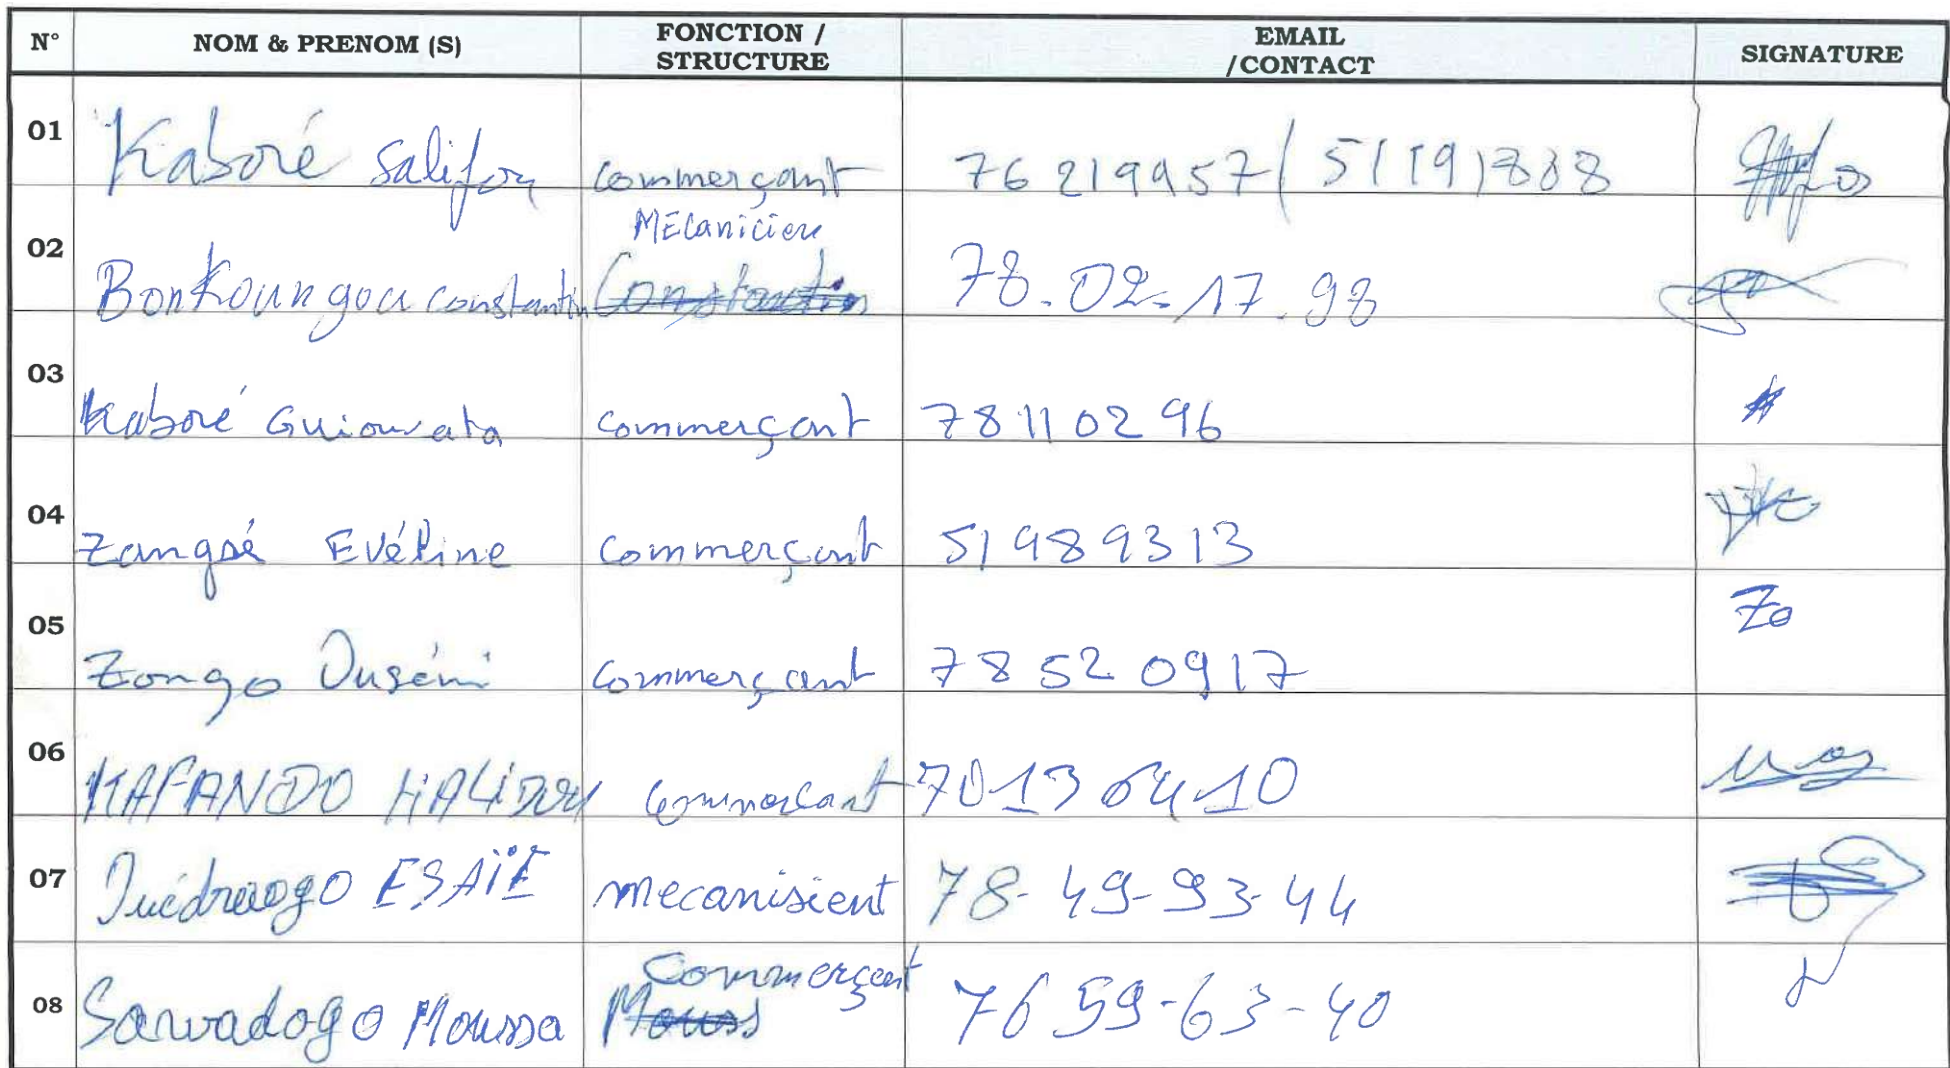 N° NOM & PRENOM (S) FONCTION / STRUCTURE EMAIL /CONTACT SIGNATURE
01 Kaboré Salifou commerçant 76 219957/ 51191838
MECanicien
02 BonKoungou constantin Constantin 78.02-17.98
03 Kaboré Guiouvata commerçant 78110296
04 Zangré Evéline commerçant 51989313
05 Zongo Ouséni commerçant 78520917
06 KAFANDO HALiDOU commercant 70136410
07 Ouédraogo ESAÏE mecanisient 78-49-93-44
Commerçant
08 Sawadogo Moussa Mouss 7659-63-40